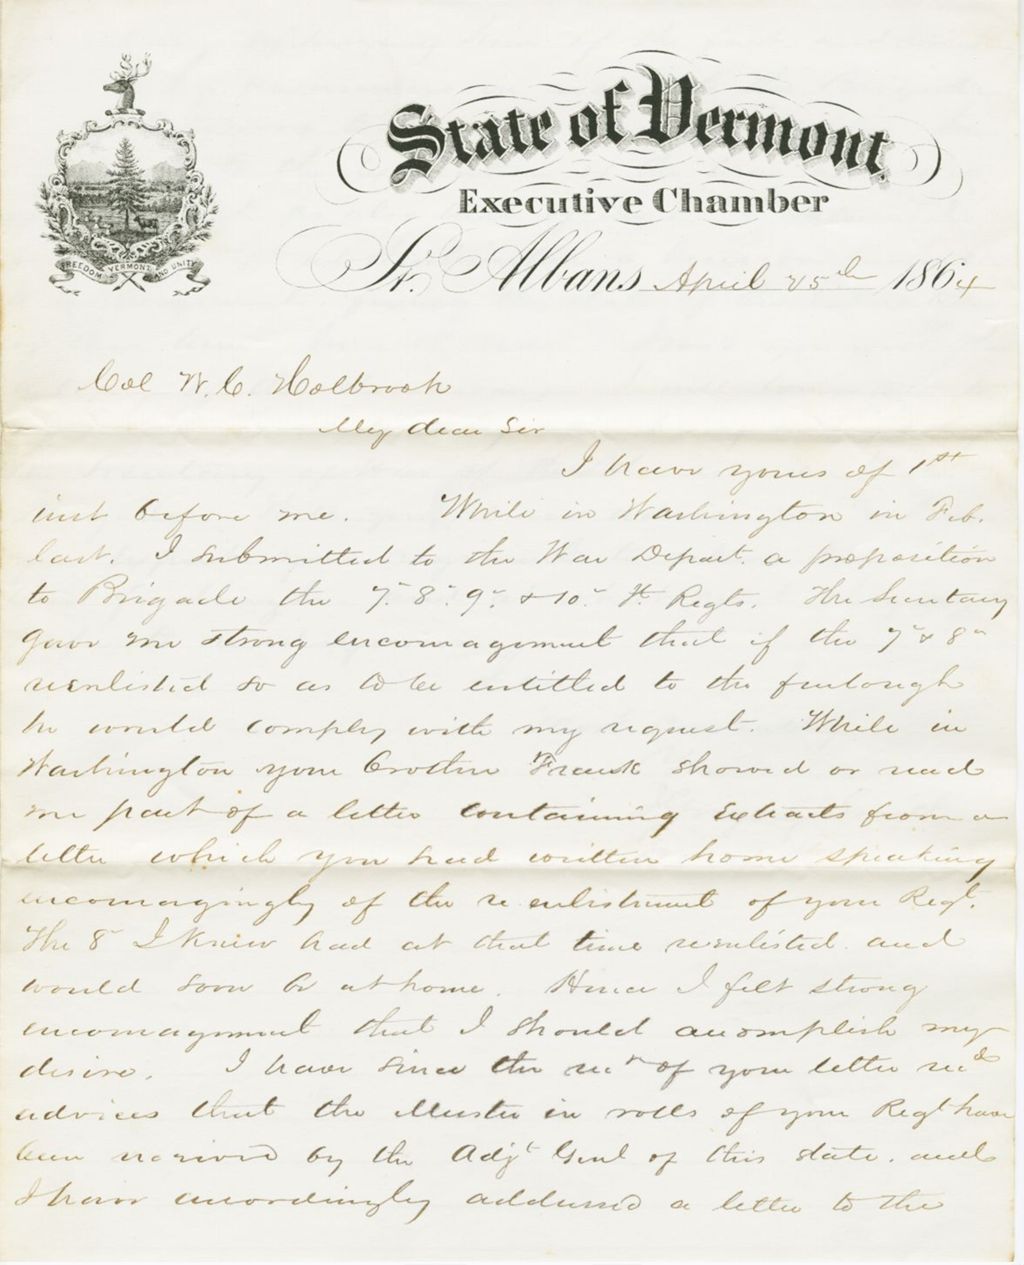 State of Vermont
Executive Chamber
FREEDOM VERMONT AND UNITY
St. Albans April 25th 1864
Col W. C. Holbrook
My dear Sir
I have yours of 1st
inst before me. While in Washington in Feb.
last. I submitted to the War Depart. a proposition
to Brigade the 7. 8. 9. & 10. Vt. Regts. The Secretary
gave me strong encouragement that if the 7 & 8th
reenlisted so as to be entitled to the furlough
he would comply with my request. While in
Washington your Brother Frank showed or read
me part of a letter containing extracts from a
letter which you had written home speaking
encouragingly of the re enlistment of your Regt.
The 8 I knew had at that time reenlisted. and
would soon be at home. Hence I felt strong
encouragement that I should accomplish my
desire. I have since the rect of your letter recd
advices that the Muster in rolls of your Regt have
been received by the Adjt Genl of this state. and
I have accordingly addressed a letter to the